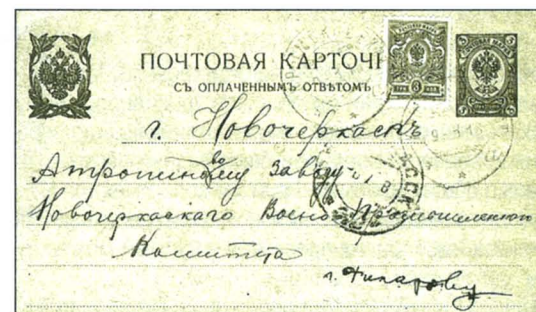 ПОЧТОВАЯ КАРТОЧК
СЪ ОПЛАЧЕННЫМЪ ОТВѢТОМЪ
г. Новочеркасскъ
Атропинному Заводу
Новочеркасскаго Военно-Промышленнаго
Комитета
г.